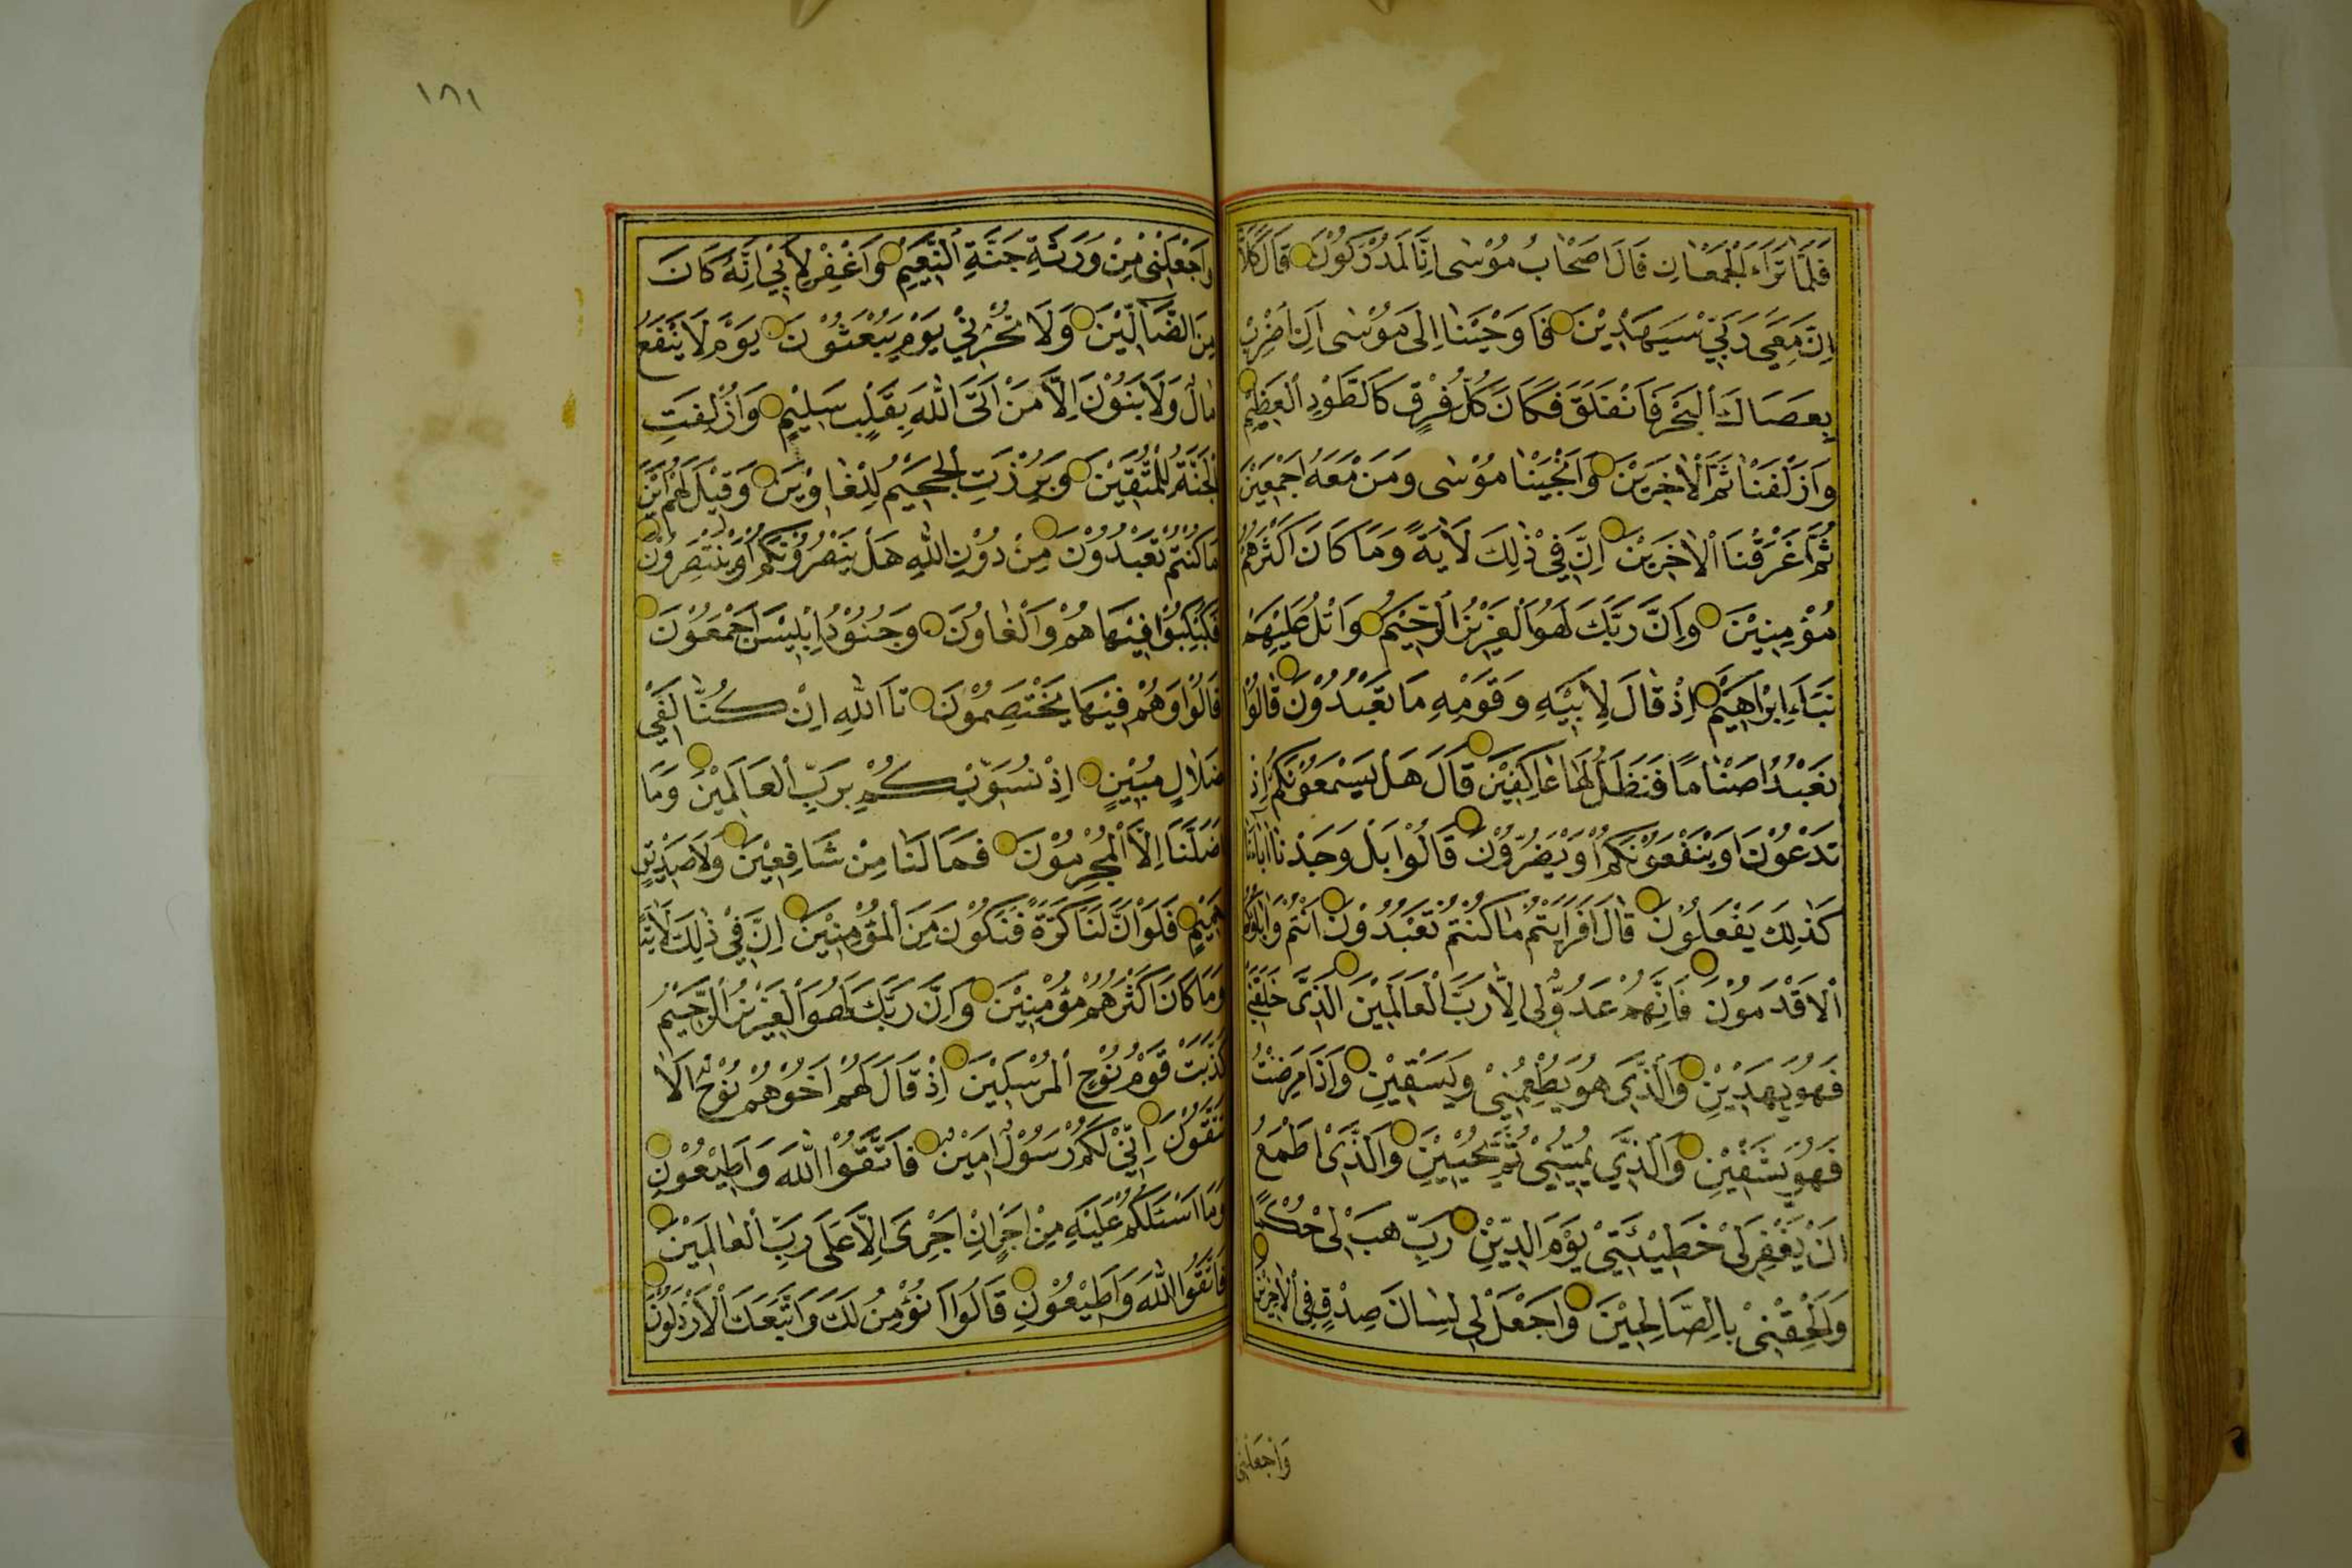 فَلَمَّا تَرَاءَ الْجَمْعَانِ قَالَ اَصْحَابُ مُوْسٰى اِنَّا لَمُدْرَكُوْنَ قَالَ كَلَّا
اِنَّ مَعِيَ رَبِّيْ سَيَهْدِيْنَ فَاَوْحَيْنَا اِلٰى مُوْسٰى اَنِ اضْرِبْ
بِعَصَاكَ الْبَحْرَ فَانْفَلَقَ فَكَانَ كُلُّ فِرْقٍ كَالطَّوْدِ الْعَظِيْمِ
وَاَزْلَفْنَا ثَمَّ الْاٰخَرِيْنَ وَاَنْجَيْنَا مُوْسٰى وَمَنْ مَعَهُ اَجْمَعِيْنَ
ثُمَّ اَغْرَقْنَا الْاٰخَرِيْنَ اِنَّ فِيْ ذٰلِكَ لَاٰيَةً وَمَا كَانَ اَكْثَرُهُمْ
مُؤْمِنِيْنَ وَاِنَّ رَبَّكَ لَهُوَ الْعَزِيْزُ الرَّحِيْمُ وَاتْلُ عَلَيْهِمْ
نَبَاَ اِبْرَاهِيْمَ اِذْ قَالَ لِاَبِيْهِ وَقَوْمِهِ مَا تَعْبُدُوْنَ قَالُوْا
نَعْبُدُ اَصْنَامًا فَنَظَلُّ لَهَا عَاكِفِيْنَ قَالَ هَلْ يَسْمَعُوْنَكُمْ اِذْ
تَدْعُوْنَ اَوْ يَنْفَعُوْنَكُمْ اَوْ يَضُرُّوْنَ قَالُوْا بَلْ وَجَدْنَا اٰبَاءَنَا
كَذٰلِكَ يَفْعَلُوْنَ قَالَ اَفَرَاَيْتُمْ مَا كُنْتُمْ تَعْبُدُوْنَ اَنْتُمْ وَاٰبَاؤُكُمُ
الْاَقْدَمُوْنَ فَاِنَّهُمْ عَدُوٌّ لِى اِلَّا رَبَّ الْعَالَمِيْنَ الَّذِى خَلَقَنِى
فَهُوَ يَهْدِيْنِ وَالَّذِى هُوَ يُطْعِمُنِيْ وَيَسْقِيْنِ وَاِذَا مَرِضْتُ
فَهُوَ يَشْفِيْنِ وَالَّذِى يُمِيْتُنِيْ ثُمَّ يُحْيِيْنِ وَالَّذِى اَطْمَعُ
اَنْ يَغْفِرَ لِىْ خَطِيْئَتِىْ يَوْمَ الدِّيْنِ رَبِّ هَبْ لِى حُكْمًا
وَاَلْحِقْنِىْ بِالصَّالِحِيْنَ وَاجْعَلْ لِى لِسَانَ صِدْقٍ فِى الْاٰخِرِيْنَ
وَاجْعَلْنِىْ
١٨١
وَاجْعَلْنِىْ مِنْ وَرَثَةِ جَنَّةِ النَّعِيْمِ وَاغْفِرْ لِاَبِيْ اِنَّهُ كَانَ
مِنَ الضَّالِّيْنَ وَلَا تُخْزِنِيْ يَوْمَ يُبْعَثُوْنَ يَوْمَ لَا يَنْفَعُ
مَالٌ وَلَا بَنُوْنَ اِلَّا مَنْ اَتَى اللّٰهَ بِقَلْبٍ سَلِيْمٍ وَاُزْلِفَتِ
الْجَنَّةُ لِلْمُتَّقِيْنَ وَبُرِّزَتِ الْجَحِيْمُ لِلْغَاوِيْنَ وَقِيْلَ لَهُمْ اَيْنَ
مَا كُنْتُمْ تَعْبُدُوْنَ مِنْ دُوْنِ اللّٰهِ هَلْ يَنْصُرُوْنَكُمْ اَوْ يَنْتَصِرُوْنَ
فَكُبْكِبُوْا فِيْهَا هُمْ وَالْغَاوُنَ وَجُنُوْدُ اِبْلِيْسَ اَجْمَعُوْنَ
قَالُوْا وَهُمْ فِيْهَا يَخْتَصِمُوْنَ تَاَاللّٰهِ اِنْ كُنَّا لَفِيْ
ضَلَالٍ مُبِيْنٍ اِذْ نُسَوِّيْكُمْ بِرَبِّ الْعَالَمِيْنَ وَمَا
اَضَلَّنَا اِلَّا الْمُجْرِمُوْنَ فَمَا لَنَا مِنْ شَافِعِيْنَ وَلَا صَدِيْقٍ
حَمِيْمٍ فَلَوْ اَنَّ لَنَا كَرَّةً فَنَكُوْنَ مِنَ الْمُؤْمِنِيْنَ اِنَّ فِيْ ذٰلِكَ لَاٰيَةً
وَمَا كَانَ اَكْثَرُهُمْ مُؤْمِنِيْنَ وَاِنَّ رَبَّكَ لَهُوَ الْعَزِيْزُ الرَّحِيْمُ
كَذَّبَتْ قَوْمُ نُوْحٍ الْمُرْسَلِيْنَ اِذْ قَالَ لَهُمْ اَخُوْهُمْ نُوْحٌ اَلَا
تَتَّقُوْنَ اِنِّيْ لَكُمْ رَسُوْلٌ اَمِيْنٌ فَاتَّقُوْا اللّٰهَ وَاَطِيْعُوْنِ
وَمَا اَسْئَلُكُمْ عَلَيْهِ مِنْ اَجْرٍ اِنْ اَجْرِىَ اِلَّا عَلٰى رَبِّ الْعَالَمِيْنَ
فَاتَّقُوا اللّٰهَ وَاَطِيْعُوْنِ قَالُوْا اَنُؤْمِنُ لَكَ وَاتَّبَعَكَ الْاَرْذَلُوْنَ